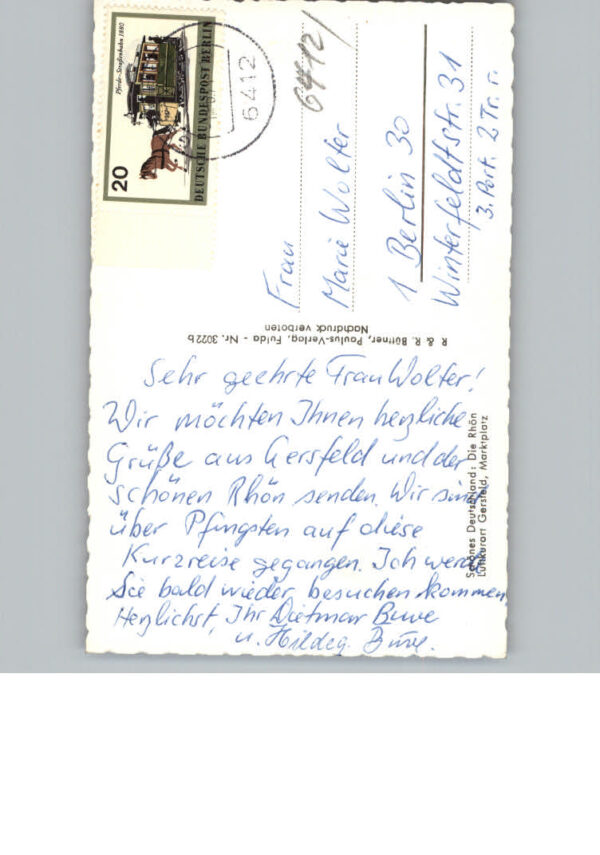 Pferde-Straßenbahn 1880
20
DEUTSCHE BUNDESPOST BERLIN
6412
6412/
Frau
Marie Wolter
1 Berlin 30
Winterfeldtstr. 31
3. Port. 2 Tr. r.
R. & R. Büttner, Paulus-Verlag, Fulda - Nr. 3022 b
Nachdruck verboten
Schönes Deutschland: Die Rhön
Luftkurort Gersfeld, Marktplatz
Sehr geehrte Frau Wolter!
Wir möchten Ihnen herzliche
Grüße aus Gersfeld und der
schönen Rhön senden. Wir sind
über Pfingsten auf diese
Kurzreise gegangen. Ich werde
Sie bald wieder besuchen kommen.
Herzlichst, Ihr Dietmar
u. Hildeg.